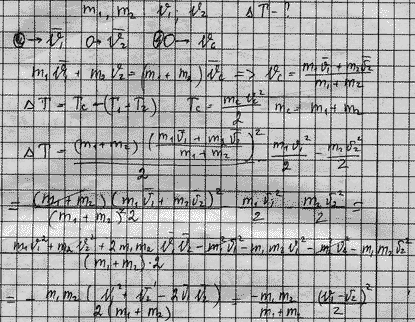 m₁, m₂ v₁, v₂ ΔT - ?
→ v̄₁ 0→ v̄₂ 0→ v_c
m₁v̄₁ + m₂v̄₂ = (m₁ + m₂) v̄_c => v_c = (m₁v̄₁ + m₂v̄₂)/(m₁ + m₂)
ΔT = T_c - (T₁ + T₂) T_c = m_c v_c²/2 m_c = m₁ + m₂
ΔT = (m₁ + m₂) ((m₁v̄₁ + m₂v̄₂)/(m₁ + m₂))²/2 - m₁v₁²/2 - m₂v₂²/2
= (m₁ + m₂) (m₁v̄₁ + m₂v̄₂)²/((m₁ + m₂)² 2) - m₁v̄₁²/2 - m₂v̄₂²/2 =
m₁²v₁² + m₂²v₂² + 2m₁m₂ v̄₁ v̄₂ - m₁²v₁² - m₁m₂v₁² - m₂²v₂² - m₁m₂v₂²/(m₁ + m₂)·2
= - m₁m₂ (v₁² + v₂² - 2v̄₁v̄₂)/2(m₁ + m₂) = -m₁m₂/(m₁ + m₂) (v̄₁ - v̄₂)²/2